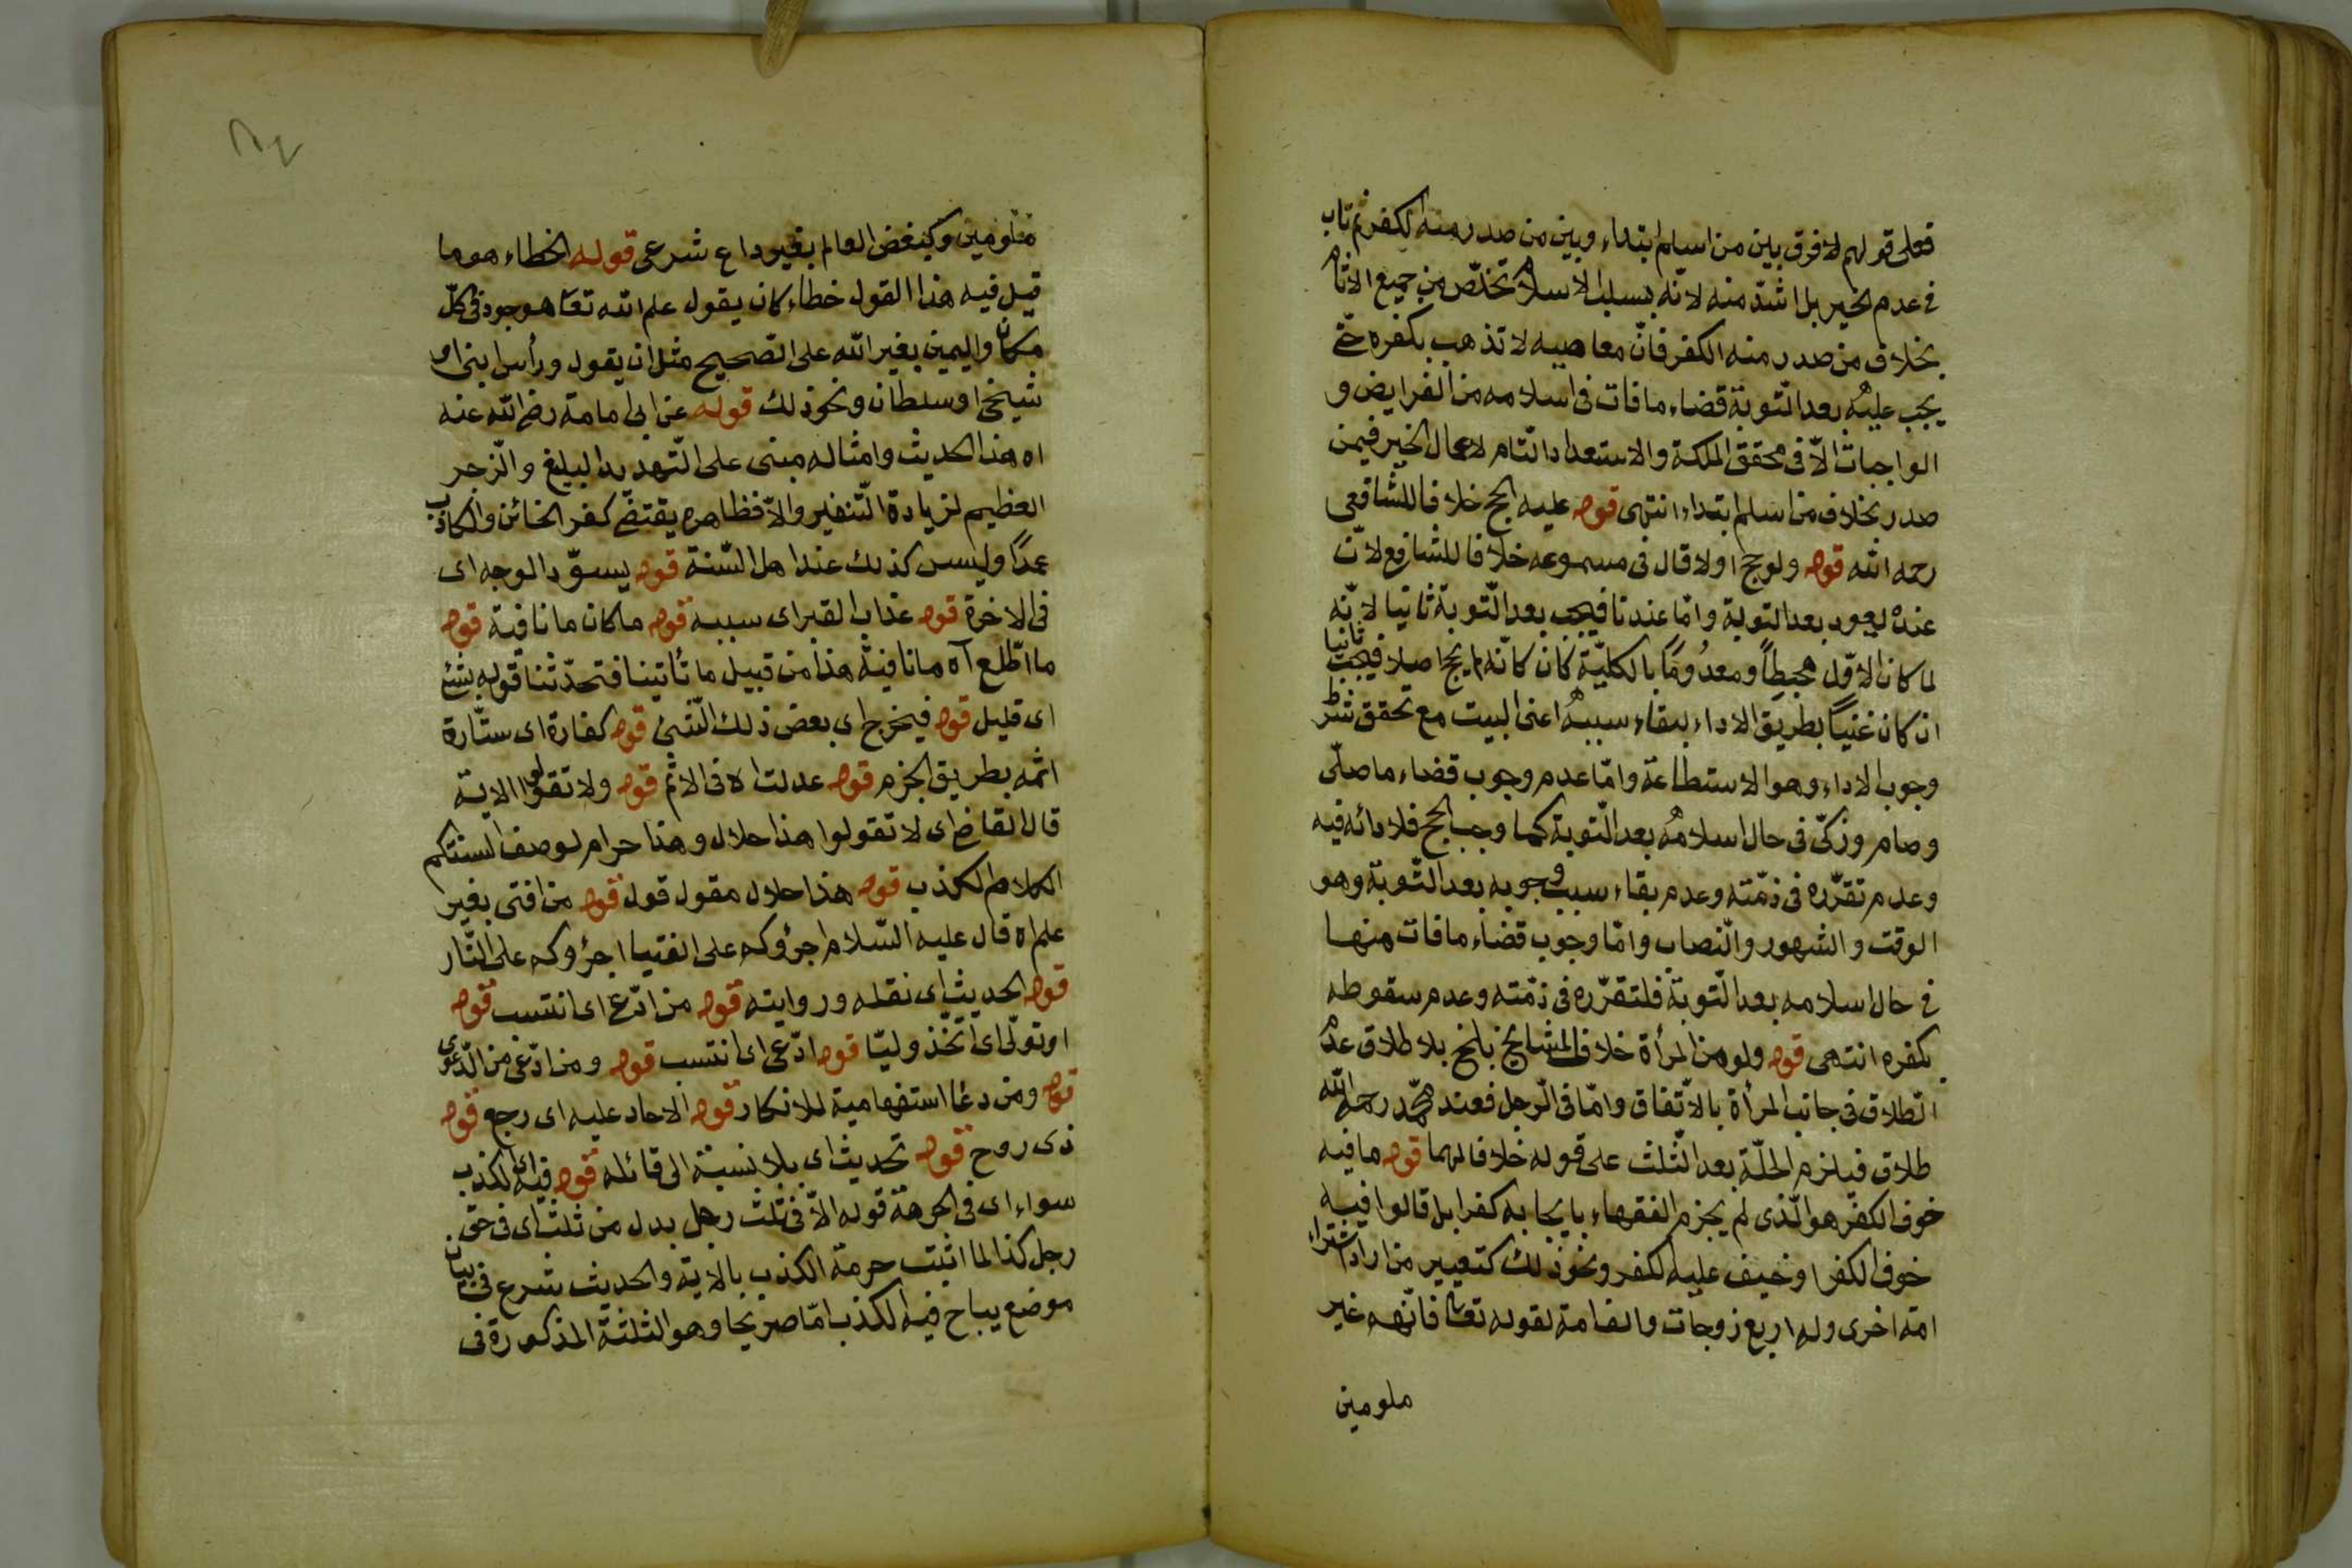 فعلى قولهم لا فرق بين من اسلم ابتداء وبين من صدر منه الكفر ثم تاب
فى عدم الخير بل اشدّ منه لانّه بسبب الاسلام تخلّص من جميع الاثام
بخلاف من صدر منه الكفر فانّ معاصيه لا تذهب بكفره حتّى
يجب عليه بعد التّوبة قضاء ما فات فى اسلامه من الفرايض و
الواجبات الاّ فى تحقق الملكة والاستعداد التّام لاعمال الخير فيمن
صدر بخلاف من اسلم ابتداء انتهى قوله عليه الحج خلافا للشافعى
رحمه الله قوله ولو حج اولا قال فى مسموعه خلافا للشافعى لانّ
عنده يعود بعد التوبة وامّا عندنا فيجب بعد التّوبة ثانيا لانّه
لما كان الاوّل محبطاً ومعدُوماً بالكليّة كان كانّه لم يحج اصلا فيجب ثانيا
ان كان غنيّاً بطريق الاداء لبقاء سببه اعنى البيت مع تحقق شرط
وجوب الاداء وهو الاستطاعة وامّا عدم وجوب قضاء ما صلّى
وصام وزكّى فى حال اسلامه بعد التّوبة كما وجب الحج فلادائه فيه
وعدم تقرّره فى ذمّته وعدم بقاء سبب وجوبه بعد التّوبة وهو
الوقت والشهور والنّصاب وامّا وجوب قضاء ما فات منها
فى حال اسلامه بعد التّوبة فلتقرّره فى ذمّته وعدم سقوطه
بكفره انتهى قوله ولو من المرأة خلافا لمشايخ بلخ بلا طلاق عدم
الطلاق فى جانب المرأة بالاتّفاق وامّا فى الرّجل فعند محمّد رحمه الله
طلاق فيلزم الحلّة بعد الثّلث على قوله خلافا لهما قوله ما فيه
خوف الكفر هو الّذى لم يجزم الفقهاء بايجابه كفرا بل قالوا فيه
خوف الكفر او خيف عليه الكفر ونحو ذلك كتعيير من اراد اشتراء
امة اخرى وله اربع زوجات والف امة لقوله تعالى فانّهم غير
ملومين
ملومين وكبغض العالم بغير داع شرعى قوله الخطاء هو ما
قيل فيه هذا القول خطاء كان يقول علم الله تعالى موجود فى كلّ
مكان واليمين بغير الله على الصّحيح مثل ان يقول ورأس ابنى او
شيخى او سلطان ونحو ذلك قوله عن ابى امامة رضى الله عنه
اه هذا الحديث وامثاله مبنى على التّهديد البليغ والزّجر
العظيم لزيادة التّنفير والاّ فظاهره يقتضى كفر الخائن والكاذب
عمدًا وليس كذلك عند اهل السّنة قوله يسوّد الوجه اى
فى الاخرة قوله عذاب القبر اى سببه قوله ما كان ما نافية قوله
ما اطّلع آه ما نافية هذا من قبيل ما تأتينا فتحدّثنا قوله بشئ
اى قليل قوله فيخرج اى بعض ذلك الشّئ قوله كفارة اى ستّارة
اثمه بطريق الجزم قوله عدلت اه فى الاثم قوله ولا تقولوا الاية
قال القاضى اى لا تقولوا هذا حلال وهذا حرام لوصف السنتكم
الكلام الكذب قوله هذا حلال مقول قول قوله من افتى بغير
علم اه قال عليه السّلام اجرؤكم على الفتيا اجرؤكم على النّار
قوله الحديث اى نقله وروايته قوله من ادّعى اى انتسب قوله
او تولّى اى اتّخذ وليّا قوله ادّعى اى انتسب قوله ومن ادّعى من الدّعوى
قوله ومن دعا استفهامية للانكار قوله الا حاد عليه اى رجع قوله
ذى روح قوله تحديث اى بلا نسبة الى قائله قوله فيه اى الكذب
سواء اى فى الحرمة قوله الاّ فى ثلث رجل بدل من ثلث اى فى حق
رجل كذا لما اثبت حرمة الكذب بالاية والحديث شرع فى بيان
موضع يباح فيه الكذب امّا صريحا وهو الثلثة المذكورة فى